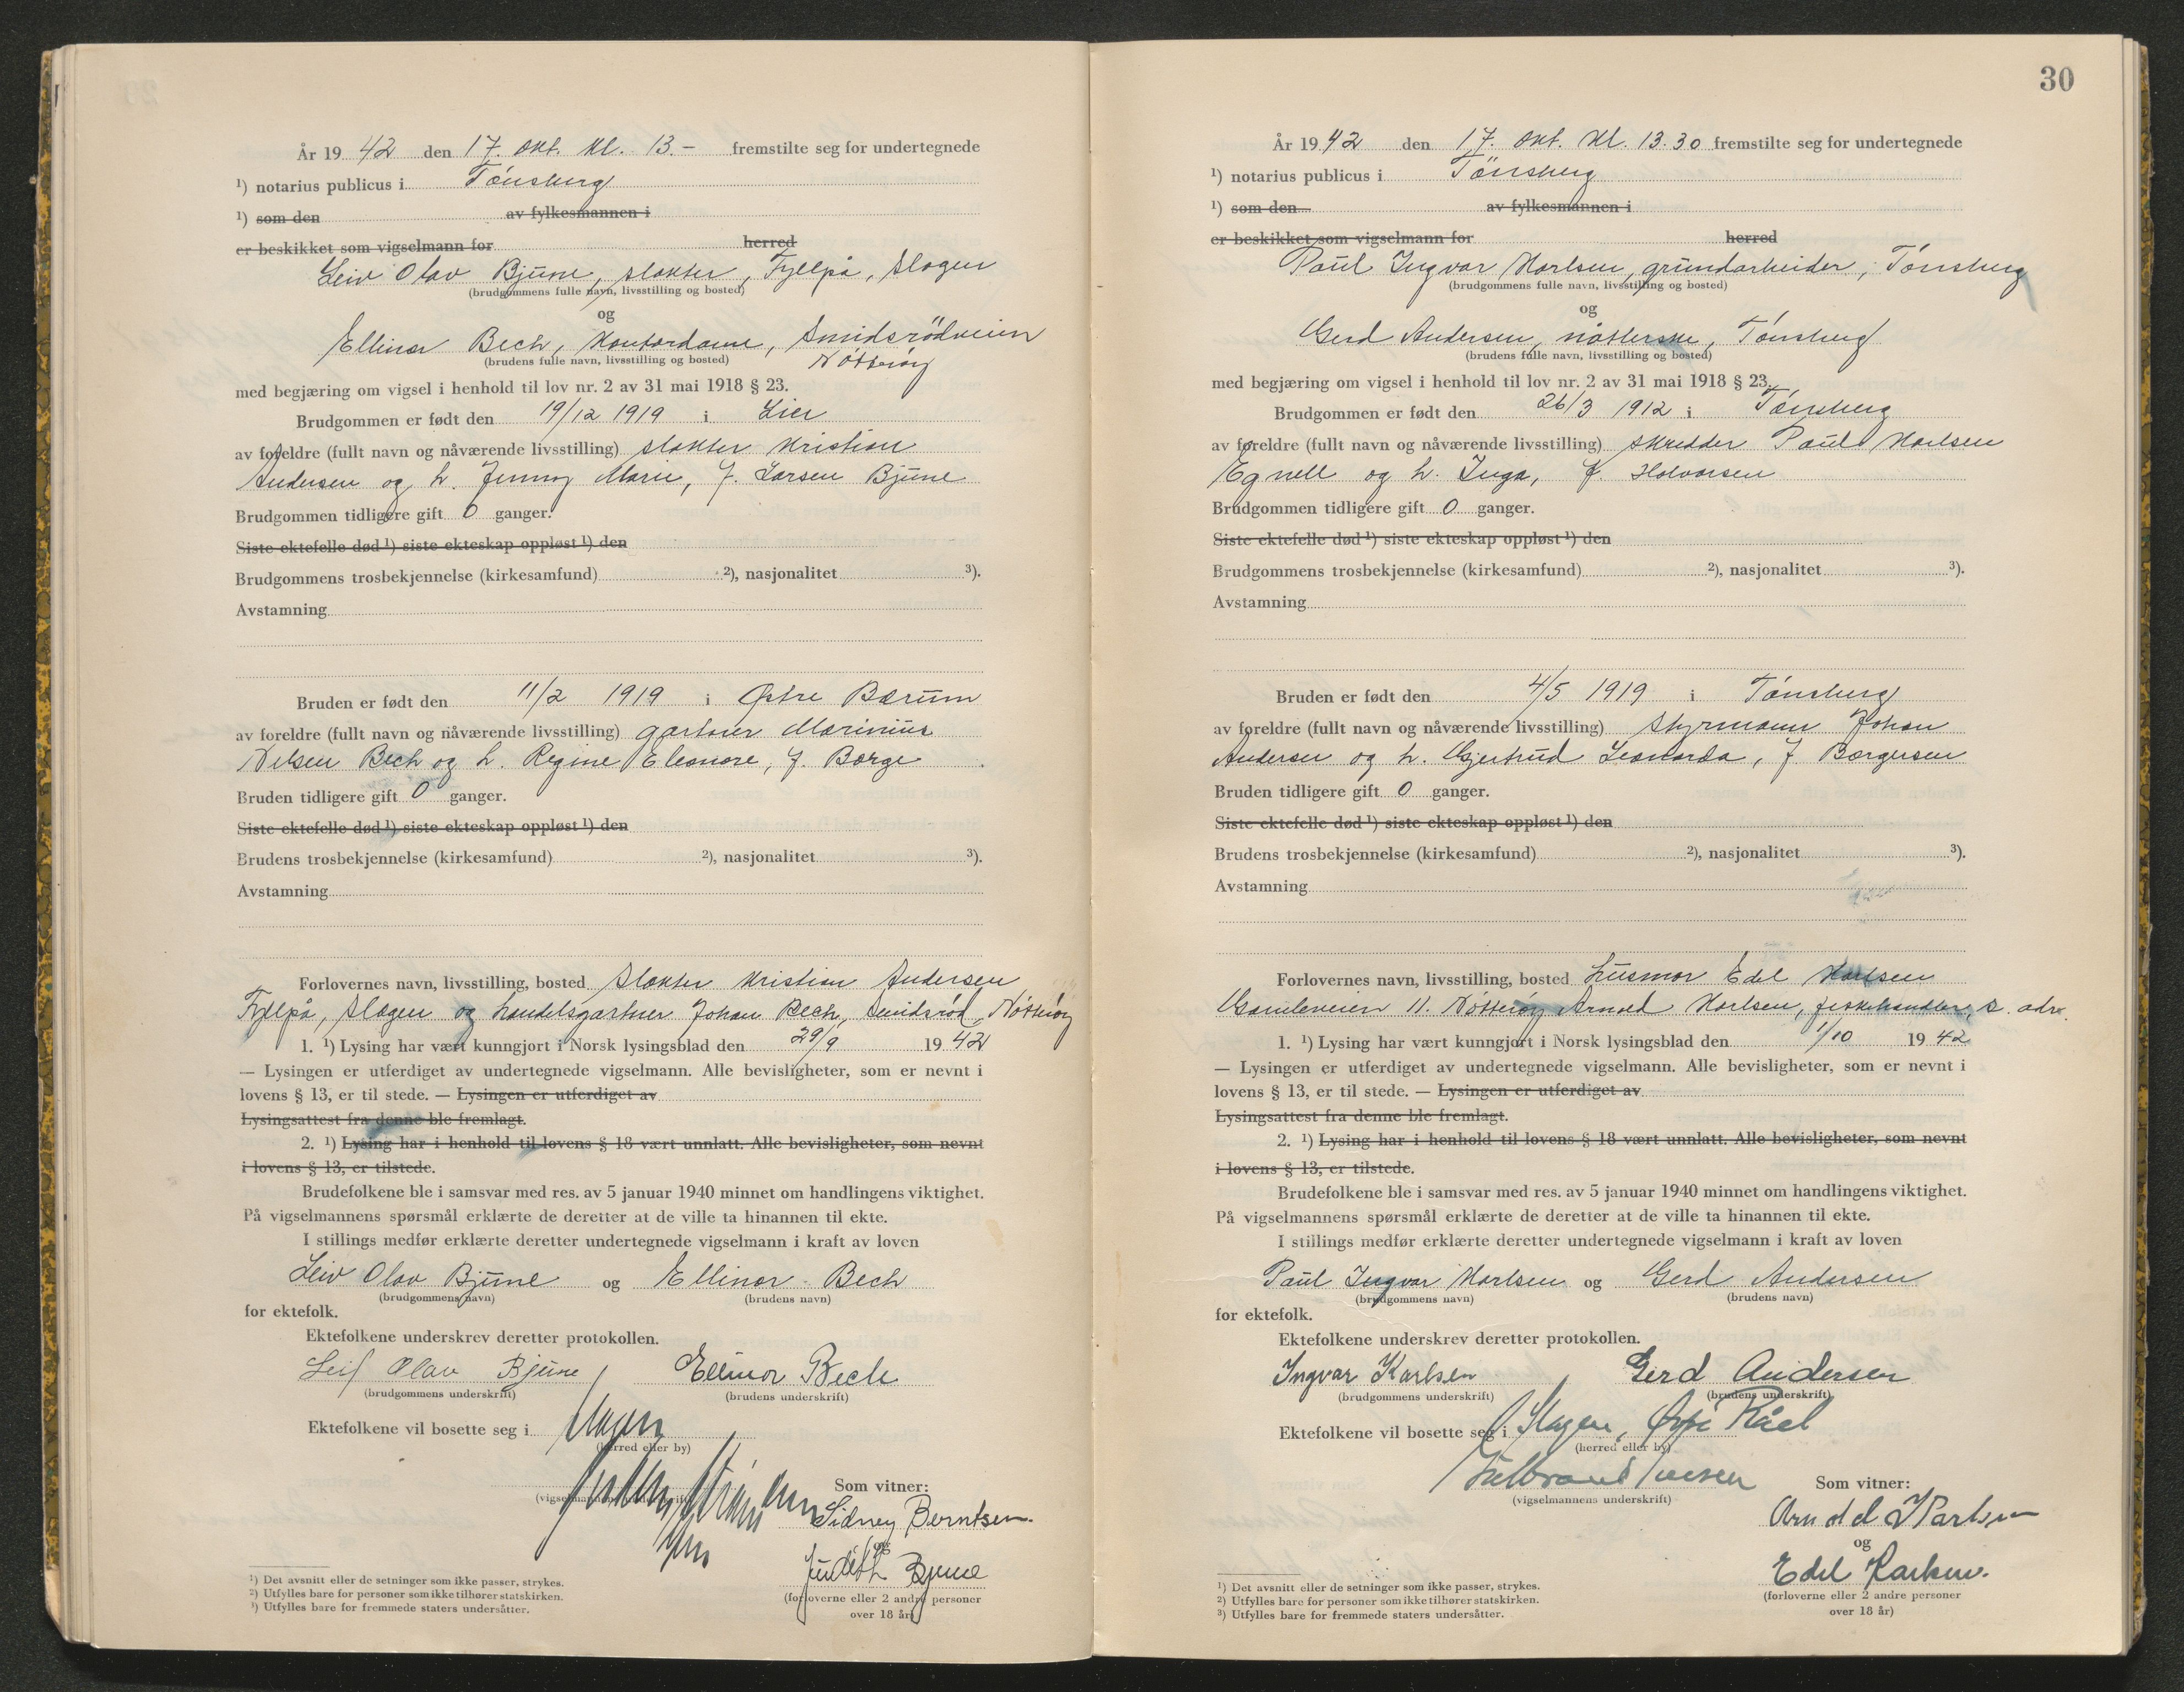 År 19 42 den 17. okt. kl. 13.- fremstilte seg for undertegnede
¹) notarius publicus i Tönsberg
¹) som den av fylkesmannen i
er beskikket som vigselmann for herred
Leiv Olav Bjune, slakter, Fyllpå, Slagen
(brudgommens fulle navn, livsstilling og bosted)
og
Ellinor Bech, kontordame, Smidsrödveien
(brudens fulle navn, livsstilling og bosted) Nötteröy
med begjæring om vigsel i henhold til lov nr. 2 av 31 mai 1918 § 23.
Brudgommen er født den 19/12 1919 i Lier
av foreldre (fullt navn og nåværende livsstilling) slakter Kristian
Andersen og h. Jenny Marie, f. Larsen Bjune
Brudgommen tidligere gift 0 ganger.
Siste ektefelle død ¹) siste ekteskap oppløst ¹) den
Brudgommens trosbekjennelse (kirkesamfund) ²), nasjonalitet ³).
Avstamning
Bruden er født den 11/2 1919 i Østre Bærum
av foreldre (fullt navn og nåværende livsstilling) gartner Marinius
Nilsen Bech og h. Regine Eleonore, f. Borge
Bruden tidligere gift 0 ganger.
Siste ektefelle død ¹) siste ekteskap oppløst ¹) den
Brudens trosbekjennelse (kirkesamfund) ²), nasjonalitet ³).
Avstamning
Forlovernes navn, livsstilling, bosted Slakter Kristian Andersen
Fyllpå, Slagen og handelsgartner Johan Bech, Smidsröd, Nötteröy
1. ¹) Lysing har vært kunngjort i Norsk lysingsblad den 29/9 19 42
— Lysingen er utferdiget av undertegnede vigselmann. Alle bevisligheter, som er nevnt i
lovens § 13, er til stede. — Lysingen er utferdiget av
Lysingsattest fra denne ble fremlagt.
2. ¹) Lysing har i henhold til lovens § 18 vært unnlatt. Alle bevisligheter, som nevnt
i lovens § 13, er tilstede.
Brudefolkene ble i samsvar med res. av 5 januar 1940 minnet om handlingens viktighet.
På vigselmannens spørsmål erklærte de deretter at de ville ta hinannen til ekte.
I stillings medfør erklærte deretter undertegnede vigselmann i kraft av loven
Leiv Olav Bjune og Ellinor Bech
(brudgommens navn) (brudens navn)
for ektefolk.
Ektefolkene underskrev deretter protokollen.
Leif Olav Bjune Ellinor Bech
(brudgommens underskrift) (brudens underskrift)
Ektefolkene vil bosette seg i Slagen
(herred eller by)
Som vitner:
(vigselmannens underskrift)
Sidney Berntsen.
og
Judith Bjune
(forloverne eller 2 andre personer
over 18 år)
¹) Det avsnitt eller de setninger som ikke passer, strykes.
²) Utfylles bare for personer som ikke tilhører statskirken.
³) Utfylles bare for fremmede staters undersåtter.
30
År 19 42 den 17. okt. kl. 13.30 fremstilte seg for undertegnede
¹) notarius publicus i Tönsberg
¹) som den av fylkesmannen i
er beskikket som vigselmann for herred
Paul Ingvar Karlsen, grundarbeider, Tönsberg
(brudgommens fulle navn, livsstilling og bosted)
og
Gerd Andersen, nåtlerske, Tönsberg
(brudens fulle navn, livsstilling og bosted)
med begjæring om vigsel i henhold til lov nr. 2 av 31 mai 1918 § 23.
Brudgommen er født den 26/3 1912 i Tönsberg
av foreldre (fullt navn og nåværende livsstilling) skredder Paul Karlsen
Egnell og h. Inga, f. Halvorsen
Brudgommen tidligere gift 0 ganger.
Siste ektefelle død ¹) siste ekteskap oppløst ¹) den
Brudgommens trosbekjennelse (kirkesamfund) ²), nasjonalitet ³).
Avstamning
Bruden er født den 4/5 1919 i Tönsberg
av foreldre (fullt navn og nåværende livsstilling) Styrmann Johan
Andersen og h. Gjertrud Leonarda, f Borgersen
Bruden tidligere gift 0 ganger.
Siste ektefelle død ¹) siste ekteskap oppløst ¹) den
Brudens trosbekjennelse (kirkesamfund) ²), nasjonalitet ³).
Avstamning
Forlovernes navn, livsstilling, bosted husmor Edel Karlsen
Gamleveien 11. Nötteröy Arnold Karlsen, fiskehandler, s. adr.
1. ¹) Lysing har vært kunngjort i Norsk lysingsblad den 1/10 19 42
— Lysingen er utferdiget av undertegnede vigselmann. Alle bevisligheter, som er nevnt i
lovens § 13, er til stede. — Lysingen er utferdiget av
Lysingsattest fra denne ble fremlagt.
2. ¹) Lysing har i henhold til lovens § 18 vært unnlatt. Alle bevisligheter, som nevnt
i lovens § 13, er tilstede.
Brudefolkene ble i samsvar med res. av 5 januar 1940 minnet om handlingens viktighet.
På vigselmannens spørsmål erklærte de deretter at de ville ta hinannen til ekte.
I stillings medfør erklærte deretter undertegnede vigselmann i kraft av loven
Paul Ingvar Karlsen og Gerd Andersen
(brudgommens navn) (brudens navn)
for ektefolk.
Ektefolkene underskrev deretter protokollen.
Ingvar Karlsen Gerd Andersen
(brudgommens underskrift) (brudens underskrift)
Ektefolkene vil bosette seg i Slagen, Råel
(herred eller by)
Som vitner:
(vigselmannens underskrift)
Arnold Karlsen
og
Edel Karlsen.
(forloverne eller 2 andre personer
over 18 år)
¹) Det avsnitt eller de setninger som ikke passer, strykes.
²) Utfylles bare for personer som ikke tilhører statskirken.
³) Utfylles bare for fremmede staters undersåtter.